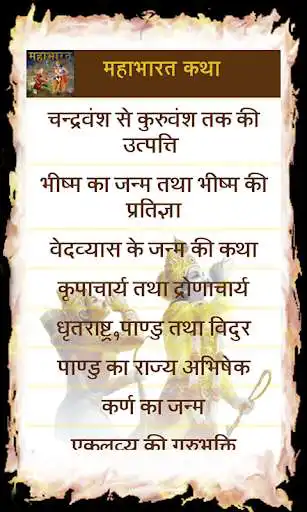 महाभारत
महाभारत कथा
चन्द्रवंश से कुरुवंश तक की
उत्पत्ति
भीष्म का जन्म तथा भीष्म की
प्रतिज्ञा
वेदव्यास के जन्म की कथा
कृपाचार्य तथा द्रोणाचार्य
धृतराष्ट्र,पाण्डु तथा विदुर
पाण्डु का राज्य अभिषेक
कर्ण का जन्म
एकलव्य की गुरुभक्ति